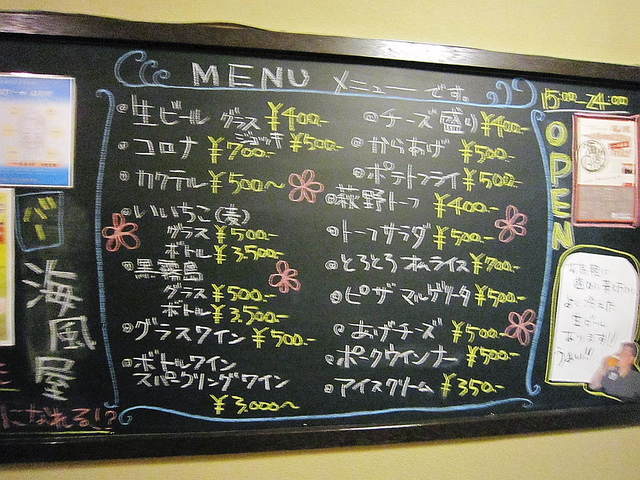 MENU メニューです。
15:00-24:00
OPEN
◎生ビール グラス ¥400-
ジョッキ ¥500-
◎コロナ ¥700-
◎カクテル ¥500〜
◎いいちこ(麦)
グラス ¥500-
ボトル ¥3,500-
◎黒霧島
グラス ¥500-
ボトル ¥3,500-
◎グラスワイン ¥500-
◎ボトルワイン
スパークリングワイン
¥3,000〜
◎チーズ盛り ¥400-
◎からあげ ¥500-
◎ポテトフライ ¥500-
◎萩野トーフ ¥400-
◎トーフサラダ ¥500-
◎とろとろオムライス ¥700-
◎ピザ マルゲリータ ¥500-
◎あげチーズ ¥500-
◎ポークウインナー ¥500-
◎アイスクリーム ¥350-
バー
海風屋
になれる!?